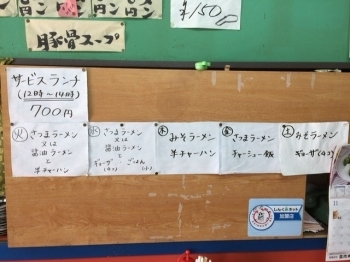 ¥150円
豚骨スープ
サービスランチ
(12時〜14時)
700円
火 さつまラーメン
又は
醤油ラーメン
と
半チャーハン
水 さつまラーメン
又は
醤油ラーメン
と
ギョーザ・ごはん
(4コ) (小)
木 みそラーメン
半チャーハン
金 さつまラーメン
チャーシュー飯
土 みそラーメン
ギョーザ(4コ)
しんくみネット
加盟店
11